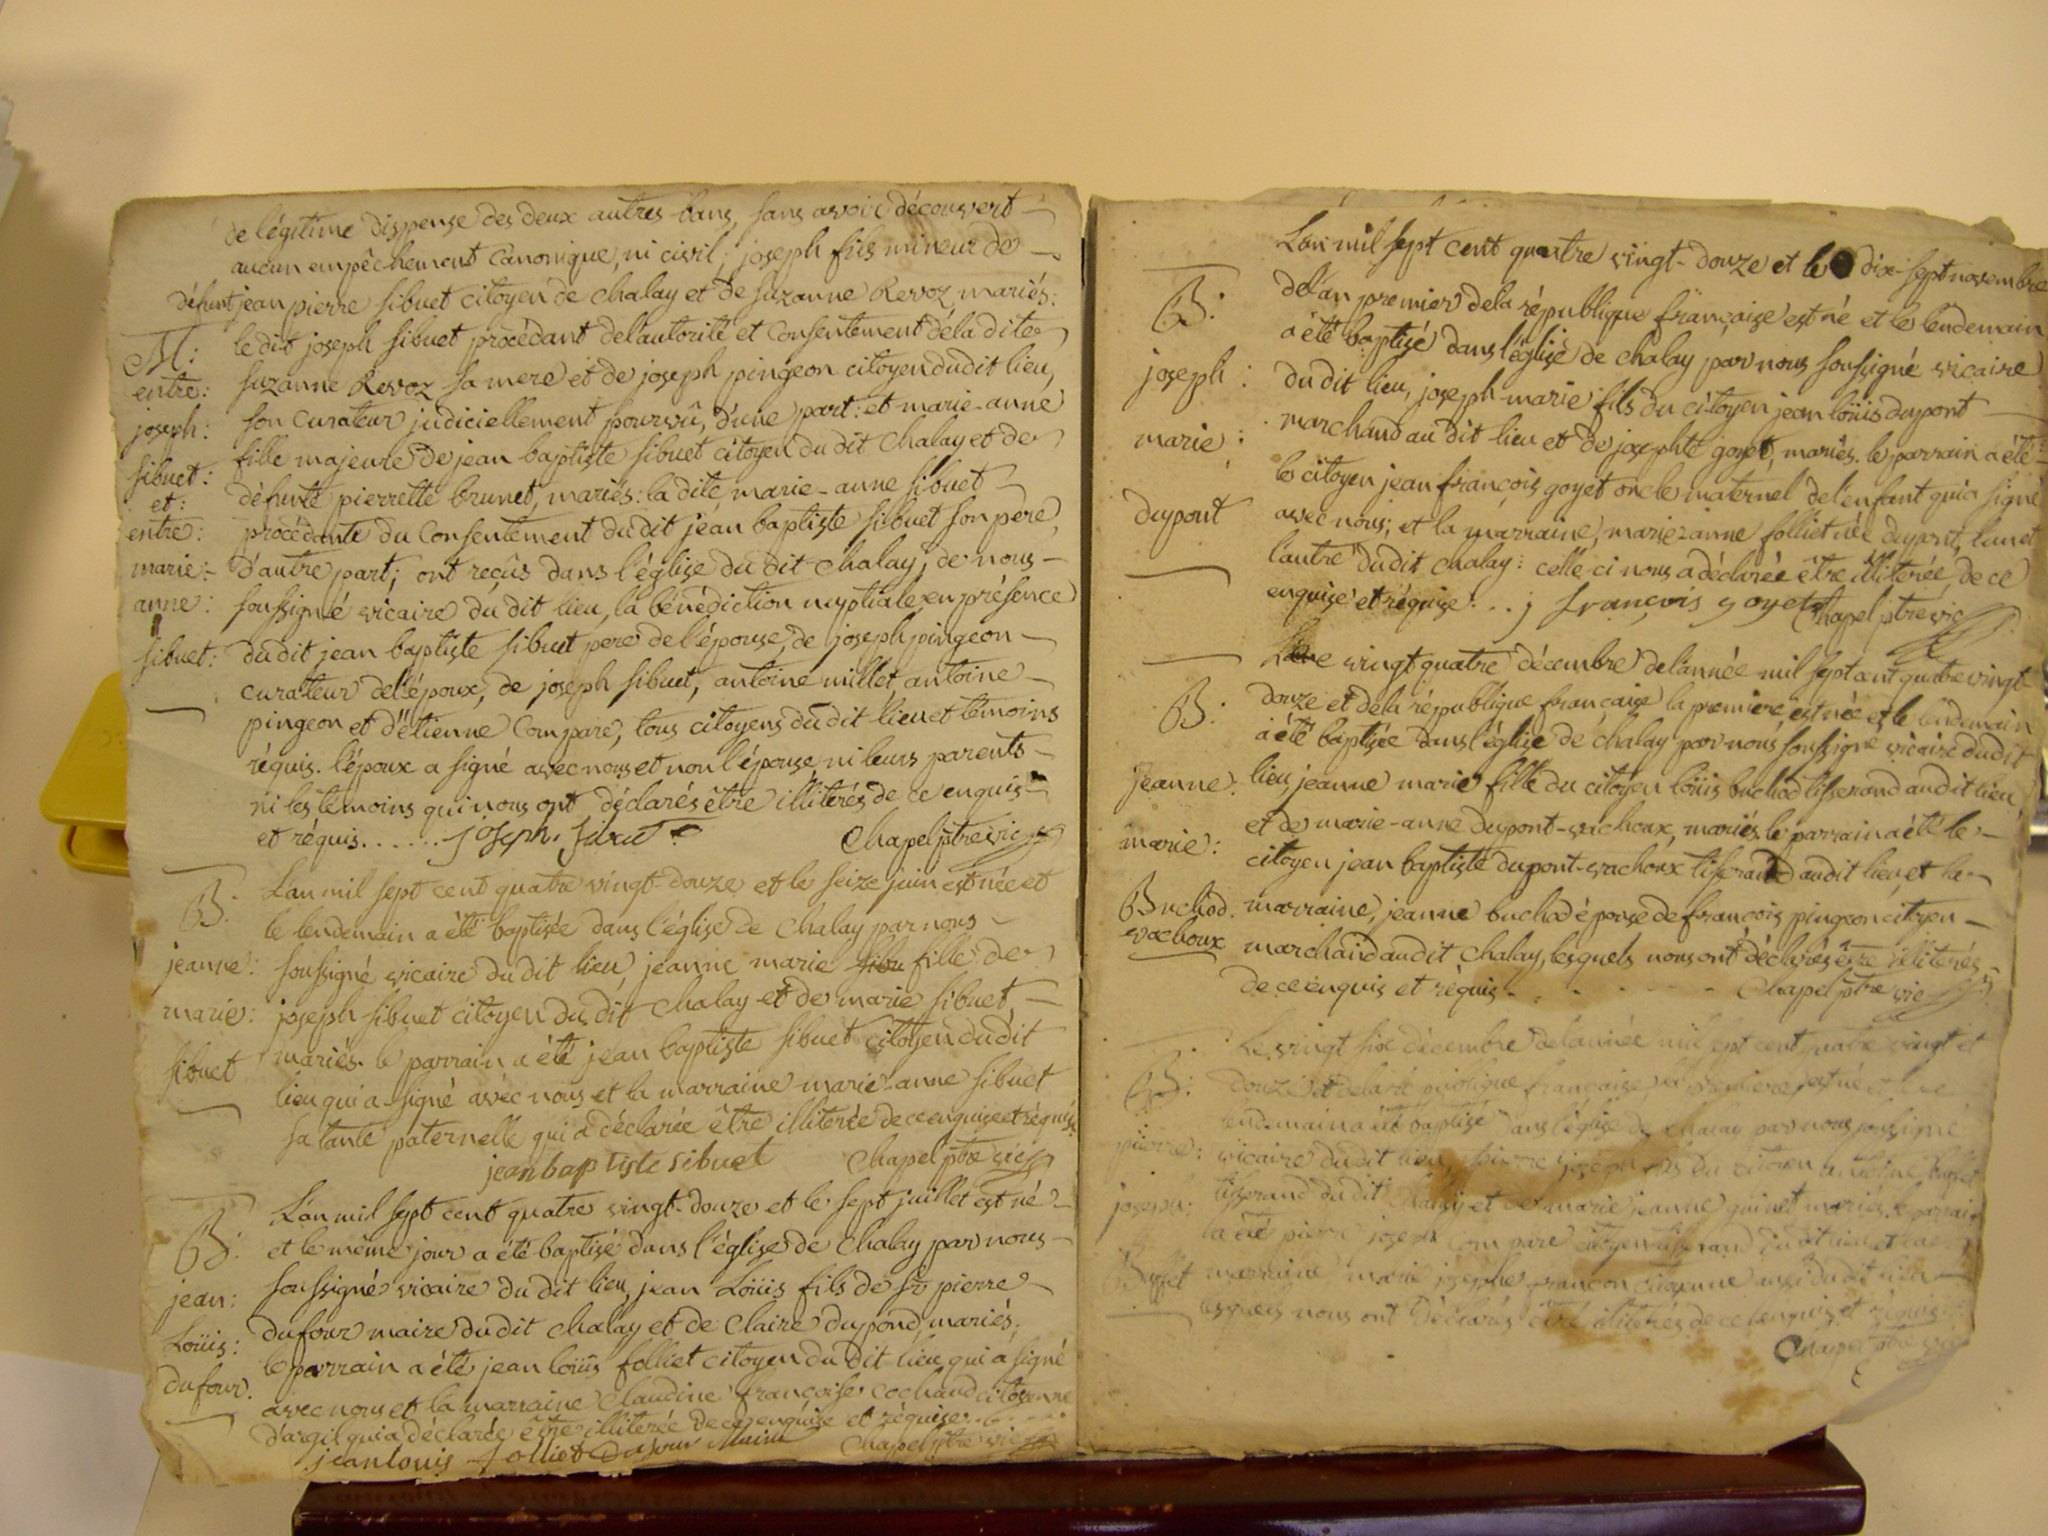 de légitime dispense des deux autres bans, sans avoir découvert
aucun empêchement canonique, ni civil; joseph fils mineur de
défunt jean pierre sibuet citoyen de chalay et de suzanne Revoz, mariés:
le dit joseph sibuet procédant de l'autorité et consentement de la dite
suzanne Revoz sa mere et de joseph pingeon citoyen du dit lieu,
son curateur judiciellement pourvû, d'une part: et marie-anne
fille majeure de jean baptiste sibuet citoyen du dit chalay et de
défunte pierrette brunet, mariés: la dite marie-anne sibuet
procédante du consentement du dit jean baptiste sibuet son pere,
d'autre part; ont reçûs dans l'église du dit chalay, de nous
soussigné vicaire du dit lieu, la bénédiction nuptiale en présence
du dit jean baptiste sibuet pere de l'épouse, de joseph pingeon
curateur de l'époux, de joseph sibuet, antoine millet, antoine
pingeon et d'étienne compare, tous citoyens du dit lieu et témoins
réquis. l'époux a signé avec nous et non l'épouse ni leurs parents
ni les témoins qui nous ont déclarés être illiterés de ce enquis
et réquis. . . . . . joseph sibuet Chapel ptre vic
M:
entre:
joseph:
sibuet:
et:
entre:
marie:
anne:
sibuet:
L'an mil sept cent quatre vingt-douze et le seize juin est née et
le lendemain a été baptisée dans l'église de chalay par nous
soussigné vicaire du dit lieu, jeanne marie sibu fille de
joseph sibuet citoyen du dit chalay et de marie sibuet
mariés. le parrain a été jean baptiste sibuet citoyen du dit
lieu qui a signé avec nous et la marraine marie-anne sibuet
sa tante paternelle qui a déclarée être illiterée de ce enquise et réquise.
jean baptiste sibuet Chapel ptre vic
B:
jeanne:
marie:
sibuet
L'an mil sept cent quatre vingt-douze et le sept juillet est né
et le même jour a été baptisé dans l'église de chalay par nous
soussigné vicaire du dit lieu, jean Loüis fils de sr pierre
dufour maire du dit chalay et de claire dupond, mariés;
le parrain a été jean loüis folliet citoyen du dit lieu qui a signé
avec nous et la marraine claudine françoise cochand citoyenne
d'argil qui a déclarée être illiterée de ce enquise et réquise.
jean louis folliet Dufour Maire Chapel ptre vic
B:
jean:
Loüis:
dufour.
L'an mil sept cent quatre vingt-douze et le dix-sept novembre
de l'an premier de la république française est né et le lendemain
a été baptisé dans l'église de chalay par nous soussigné vicaire
du dit lieu, joseph-marie fils du citoyen jean loüis dupont
marchand au dit lieu et de josephte goyet, mariés. le parrain a été
le citoyen jean françois goyet oncle maternel de l'enfant qui a signé
avec nous; et la marraine, marie-anne folliet née dupont, l'un et
l'autre du dit chalay: celle ci nous a déclarée être illiterée, de ce
enquise et réquise . . . j françois goyet Chapel ptre vic
B:
joseph:
marie:
dupont
Le vingt quatre décembre de l'année mil sept cent quatre vingt
douze et de la république française la premiere, est née et le lendemain
a été baptisée dans l'église de chalay par nous soussigné vicaire du dit
lieu, jeanne marie fille du citoyen loüis buchod tisserand au dit lieu
et de marie-anne dupont-vachoux, mariés. le parrain a été le
citoyen jean baptiste dupont-vachoux tisserand au dit lieu, et la
marraine, jeanne buchod épouse de françois pingeon citoyen
marchand au dit chalay, lesquels nous ont déclarés être illiterés
de ce enquis et réquis . . . . . . Chapel ptre vic
B:
jeanne:
marie:
Buchod.
vachoux
Le vingt six décembre de l'année mil sept cent quatre vingt et
douze et de la république française la premiere, est né et le
lendemain a été baptisé dans l'église de chalay par nous soussigné
vicaire du dit lieu, pierre joseph fils du citoyen
tisserand du dit chalay et de marie jeanne guinet mariés. le parrain
a été pierre joseph compare citoyen tisserand du dit lieu et la
marraine marie josephe françon citoyenne aussi du dit lieu
lesquels nous ont déclarés être illiterés de ce enquis et réquis
Chapel ptre vic
B:
pierre:
joseph: